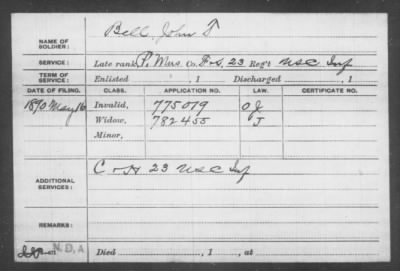 NAME OF SOLDIER: Bell, John T
SERVICE: Late rank P. Mus. Co. F+S, 23 Reg't USC Inf
TERM OF SERVICE: Enlisted , 1 Discharged , 1
DATE OF FILING. CLASS. APPLICATION NO. LAW. CERTIFICATE NO.
1890 May 16 Invalid, 775079 OJ
Widow, 782455 J
Minor,
ADDITIONAL SERVICES: C + H 23 USC Inf
REMARKS:
N.D.A Died , 1 , at